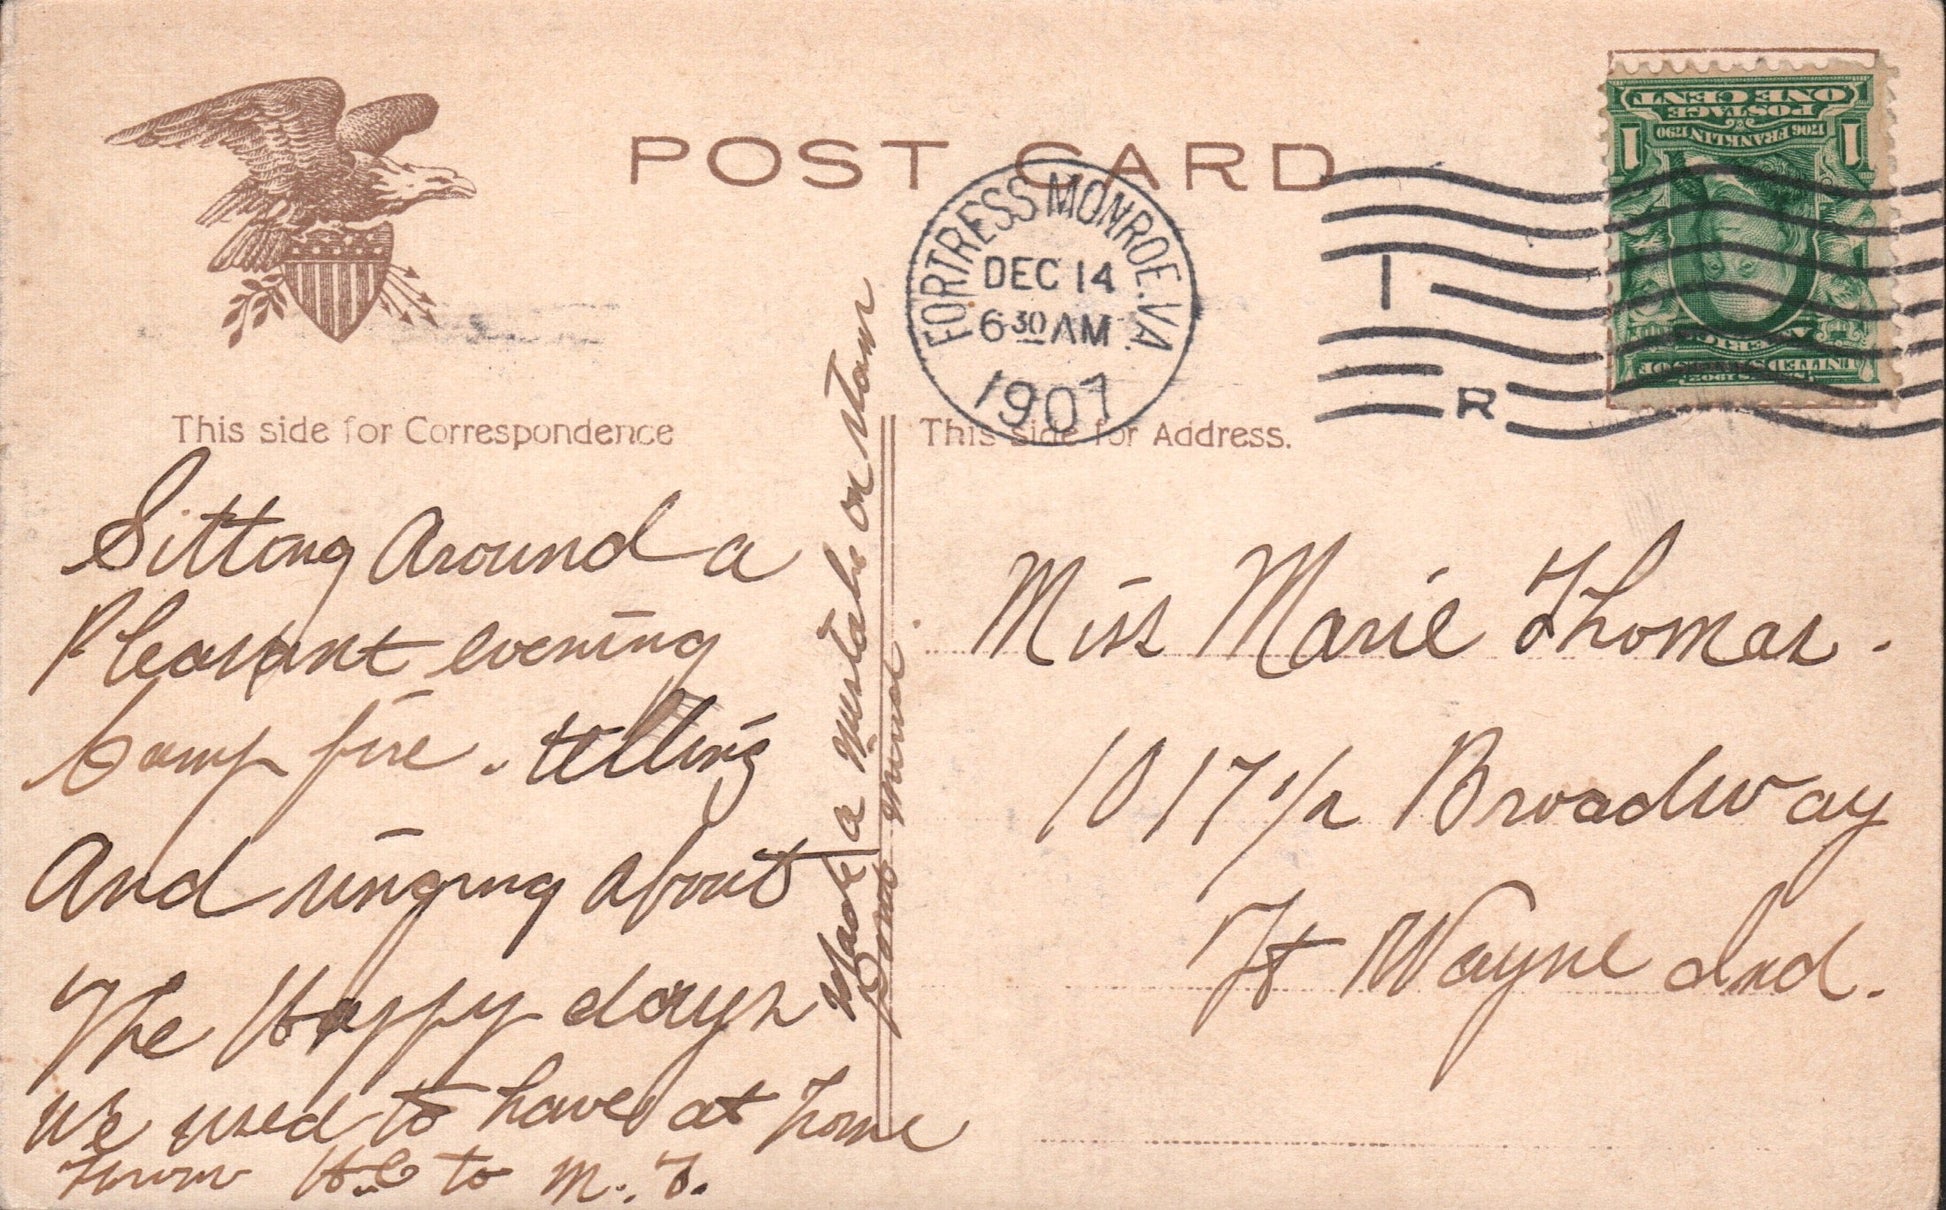 POST CARD
FORTRESS MONROE. VA.
DEC 14
6 30 AM
1907
I
R
UNITED STATES OF AMERICA
1706 FRANKLIN 1790
POSTAGE
ONE CENT
1 1
This side for Correspondence
This side for Address.
Sitting Around a
Pleasant evening
Camp fire. telling
And singing about
The Happy days
we used to have at home
From H.C to M. T.
Made a Mistake on stam
Dont Mind.
Miss Marie Thomas.
1017 1/2 Broadway
Ft Wayne Ind.